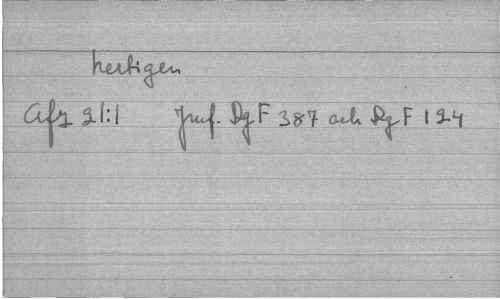 hertigen
Afz 21:1 Jmf. DgF 387 och DgF 124